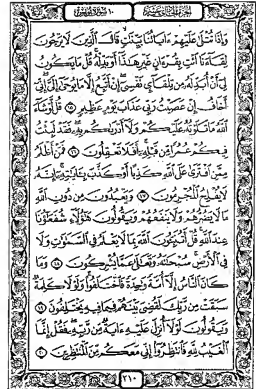 وَإِذَا تُتْلَىٰ عَلَيْهِمْ ءَايَاتُنَا بَيِّنَٰتٍ قَالَ ٱلَّذِينَ لَا يَرْجُونَ
لِقَآءَنَا ٱئْتِ بِقُرْءَانٍ غَيْرِ هَٰذَآ أَوْ بَدِّلْهُ قُلْ مَا يَكُونُ
لِىٓ أَنْ أُبَدِّلَهُۥ مِن تِلْقَآئِ نَفْسِىٓ إِنْ أَتَّبِعُ إِلَّا مَا يُوحَىٰٓ إِلَىَّ إِنِّىٓ
أَخَافُ إِنْ عَصَيْتُ رَبِّى عَذَابَ يَوْمٍ عَظِيمٍ ١٥ قُل لَّوْ شَآءَ
ٱللَّهُ مَا تَلَوْتُهُۥ عَلَيْكُمْ وَلَآ أَدْرَىٰكُم بِهِۦ فَقَدْ لَبِثْتُ
فِيكُمْ عُمُرًا مِّن قَبْلِهِۦٓ أَفَلَا تَعْقِلُونَ ١٦ فَمَنْ أَظْلَمُ
مِمَّنِ ٱفْتَرَىٰ عَلَى ٱللَّهِ كَذِبًا أَوْ كَذَّبَ بِـَٔايَٰتِهِۦٓ إِنَّهُۥ
لَا يُفْلِحُ ٱلْمُجْرِمُونَ ١٧ وَيَعْبُدُونَ مِن دُونِ ٱللَّهِ
مَا لَا يَضُرُّهُمْ وَلَا يَنفَعُهُمْ وَيَقُولُونَ هَٰٓؤُلَآءِ شُفَعَٰٓؤُنَا
عِندَ ٱللَّهِ قُلْ أَتُنَبِّـُٔونَ ٱللَّهَ بِمَا لَا يَعْلَمُ فِى ٱلسَّمَٰوَٰتِ وَلَا
فِى ٱلْأَرْضِ سُبْحَٰنَهُۥ وَتَعَٰلَىٰ عَمَّا يُشْرِكُونَ ١٨ وَمَا
كَانَ ٱلنَّاسُ إِلَّآ أُمَّةً وَٰحِدَةً فَٱخْتَلَفُوا۟ وَلَوْلَا كَلِمَةٌ
سَبَقَتْ مِن رَّبِّكَ لَقُضِىَ بَيْنَهُمْ فِيمَا فِيهِ يَخْتَلِفُونَ ١٩
وَيَقُولُونَ لَوْلَآ أُنزِلَ عَلَيْهِ ءَايَةٌ مِّن رَّبِّهِۦ فَقُلْ إِنَّمَا
ٱلْغَيْبُ لِلَّهِ فَٱنتَظِرُوٓا۟ إِنِّى مَعَكُم مِّنَ ٱلْمُنتَظِرِينَ ٢٠
٢١٠